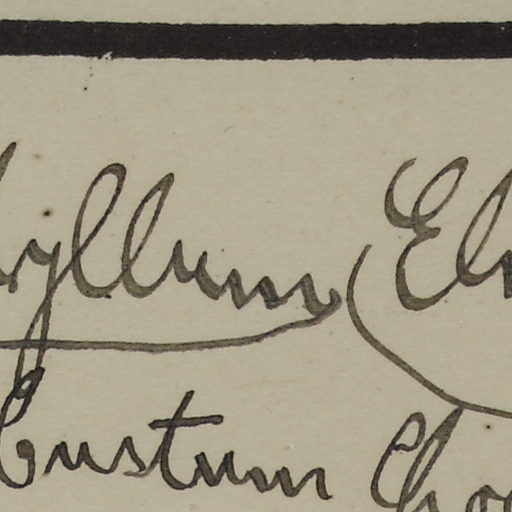 yllum (El
bustum Cho